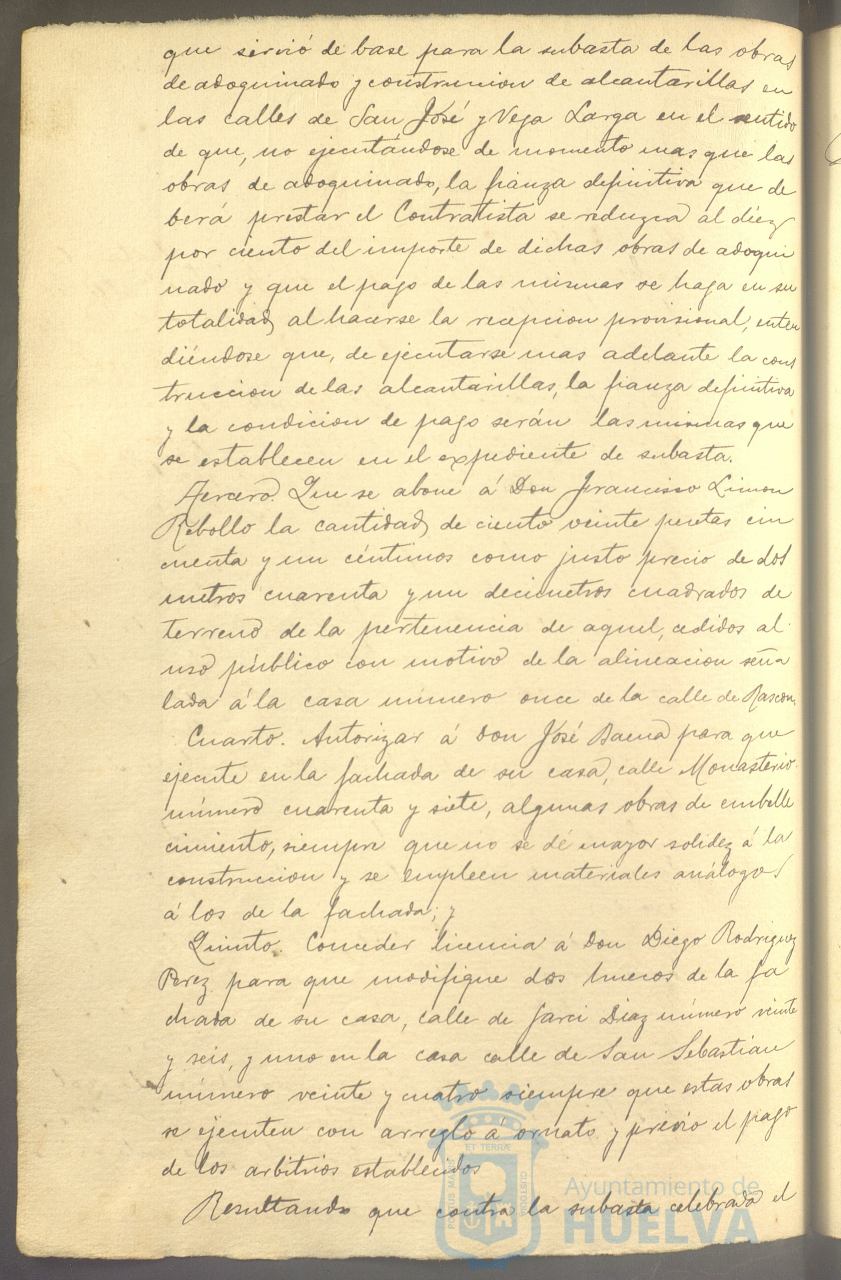 que sirvió de base para la subasta de las obras
de adoquinado y construccion de alcantarillas en
las calles de San José y Vega Larga en el sentido
de que, no ejecutándose de momento mas que las
obras de adoquinado, la fianza definitiva que de
berá prestar el Contratista se reduzca al diez
por ciento del importe de dichas obras de adoqui
nado y que el pago de las mismas se haga en su
totalidad al hacerse la recepcion provisional, enten
diéndose que, de ejecutarse mas adelante la cons
truccion de las alcantarillas, la fianza definitiva
y la condicion de pago serán las mismas que
se establecen en el expediente de subasta.
Tercero. Que se abone á Don Francisco Limon
Rebollo la cantidad de ciento veinte pesetas cin
cuenta y un céntimos como justo precio de dos
metros cuarenta y un decimetros cuadrados de
terreno de la pertenencia de aquel, cedidos al
uso público con motivo de la alineacion seña
lada á la casa número once de la calle de Rascon.
Cuarto. Autorizar á Don José Baena para que
ejecute en la fachada de su casa, calle Monasterio
número cuarenta y siete, algunas obras de embelle
cimiento, siempre que no se dé mayor solidez á la
construccion y se empleen materiales análogos
á los de la fachada; y
Quinto. Conceder licencia á Don Diego Rodriguez
Perez para que modifique dos huecos de la fa
chada de su casa, calle de Garci Diaz número veinte
y seis, y uno en la casa calle de San Sebastian
número veinte y cuatro siempre que estas obras
se ejecuten con arreglo á ornato y previo el pago
de los arbitrios establecidos
Resultando que contra la subasta celebrada el
PORTUS MARIS ET TERRÆ CUSTODIA
Ayuntamiento de
HUELVA